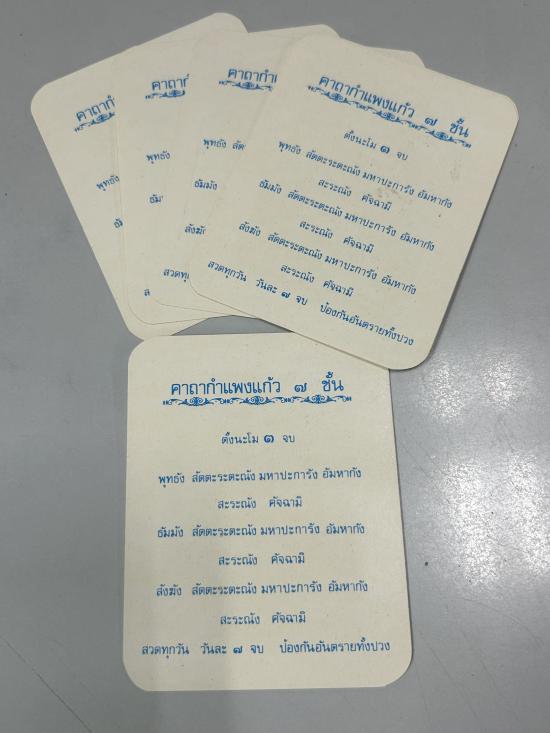 คาถากำ
พุทธัง
คาถากำ
พุทธัง
คาถากำ
พุทธัง
ธัมมัง
สังฆัง
คาถากำแพงแก้ว ๗ ชั้น
ตั้งนะโม ๑ จบ
พุทธัง สัตตะระตะณัง มหาปะการัง อัมหากัง
สะระณัง คัจฉามิ
ธัมมัง สัตตะระตะณัง มหาปะการัง อัมหากัง
สะระณัง คัจฉามิ
สังฆัง สัตตะระตะณัง มหาปะการัง อัมหากัง
สะระณัง คัจฉามิ
สวดทุกวัน วันละ ๗ จบ ป้องกันอันตรายทั้งปวง
คาถากำแพงแก้ว ๗ ชั้น
ตั้งนะโม ๑ จบ
พุทธัง สัตตะระตะณัง มหาปะการัง อัมหากัง
สะระณัง คัจฉามิ
ธัมมัง สัตตะระตะณัง มหาปะการัง อัมหากัง
สะระณัง คัจฉามิ
สังฆัง สัตตะระตะณัง มหาปะการัง อัมหากัง
สะระณัง คัจฉามิ
สวดทุกวัน วันละ ๗ จบ ป้องกันอันตรายทั้งปวง